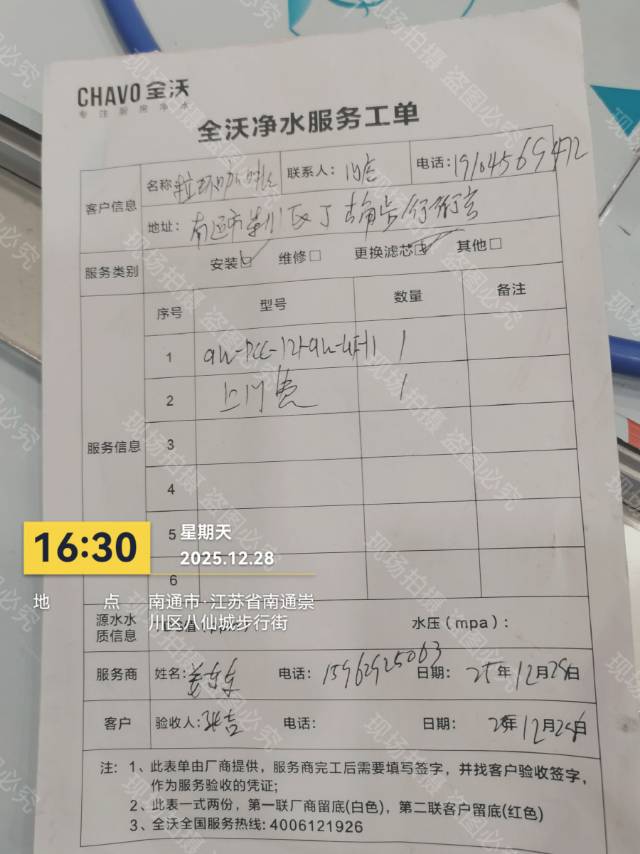 CHAVO 全沃
专注服务净水
全沃净水服务工单
客户信息
名称 联系人: 电话: 19104569472
地址: 南通市崇川区
服务类别 安装☑ 维修□ 更换滤芯☑ 其他□
服务信息
序号 型号 数量 备注
1 1
2 上门费 1
3
4
5
6
源水水质信息 水压(mpa):
服务商 姓名: 电话: 15962925063 日期: 25年12月28日
客户 验收人: 电话: 日期: 25年12月28日
注: 1、此表单由厂商提供，服务商完工后需要填写签字，并找客户验收签字，
作为服务验收的凭证;
2、此表一式两份，第一联厂商留底(白色)，第二联客户留底(红色)
3、全沃全国服务热线: 4006121926
16:30
星期天
2025.12.28
地 点 南通市·江苏省南通崇
川区八仙城步行街
现场拍摄 盗图必究